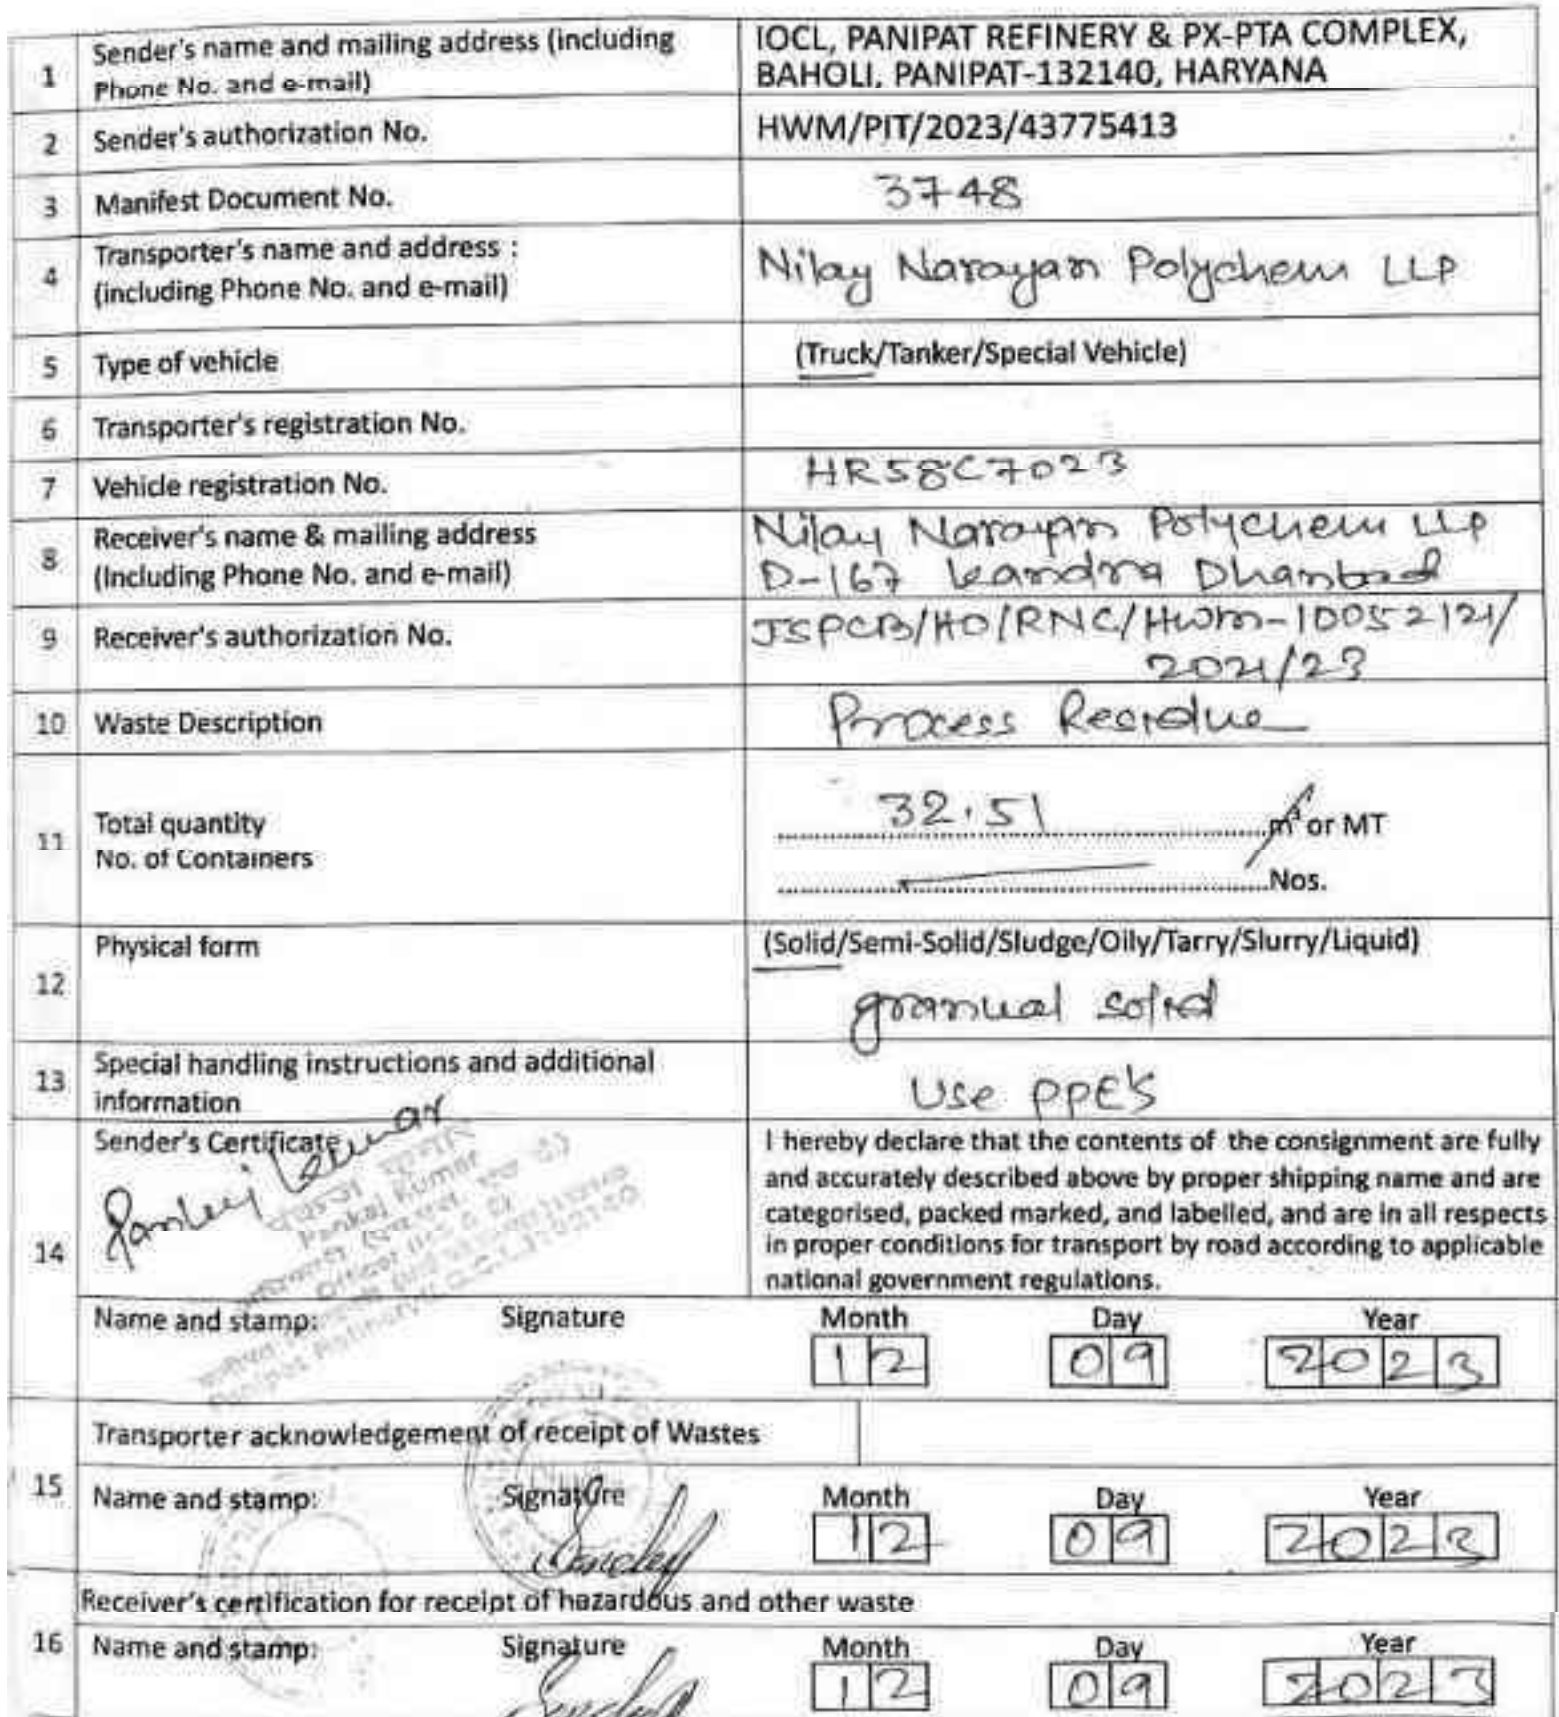 1 Sender's name and mailing address (including Phone No. and e-mail) IOCL, PANIPAT REFINERY & PX-PTA COMPLEX, BAHOLI, PANIPAT-132140, HARYANA
2 Sender's authorization No. HWM/PIT/2023/43775413
3 Manifest Document No. 3748
4 Transporter's name and address : (including Phone No. and e-mail) Nilay Narayan Polychem LLP
5 Type of vehicle (Truck/Tanker/Special Vehicle)
6 Transporter's registration No.
7 Vehicle registration No. HR58C7023
8 Receiver's name & mailing address (Including Phone No. and e-mail) Nilay Narayan Polychem LLP
D-167 Kandra Dhanbad
9 Receiver's authorization No. JSPCB/HO/RNC/HWM-10052121/
2021/23
10 Waste Description Process Residue
11 Total quantity 32.51 m³ or MT
No. of Containers Nos.
12 Physical form (Solid/Semi-Solid/Sludge/Oily/Tarry/Slurry/Liquid)
granual solid
13 Special handling instructions and additional information Use PPE's
14 Sender's Certificate
Pankaj Kumar
Pankaj Kumar
I hereby declare that the contents of the consignment are fully
and accurately described above by proper shipping name and are
categorised, packed marked, and labelled, and are in all respects
in proper conditions for transport by road according to applicable
national government regulations.
Name and stamp: Signature Month Day Year
12 09 2023
Transporter acknowledgement of receipt of Wastes
15 Name and stamp: Signature Month Day Year
12 09 2023
Receiver's certification for receipt of hazardous and other waste
16 Name and stamp: Signature Month Day Year
12 09 2023